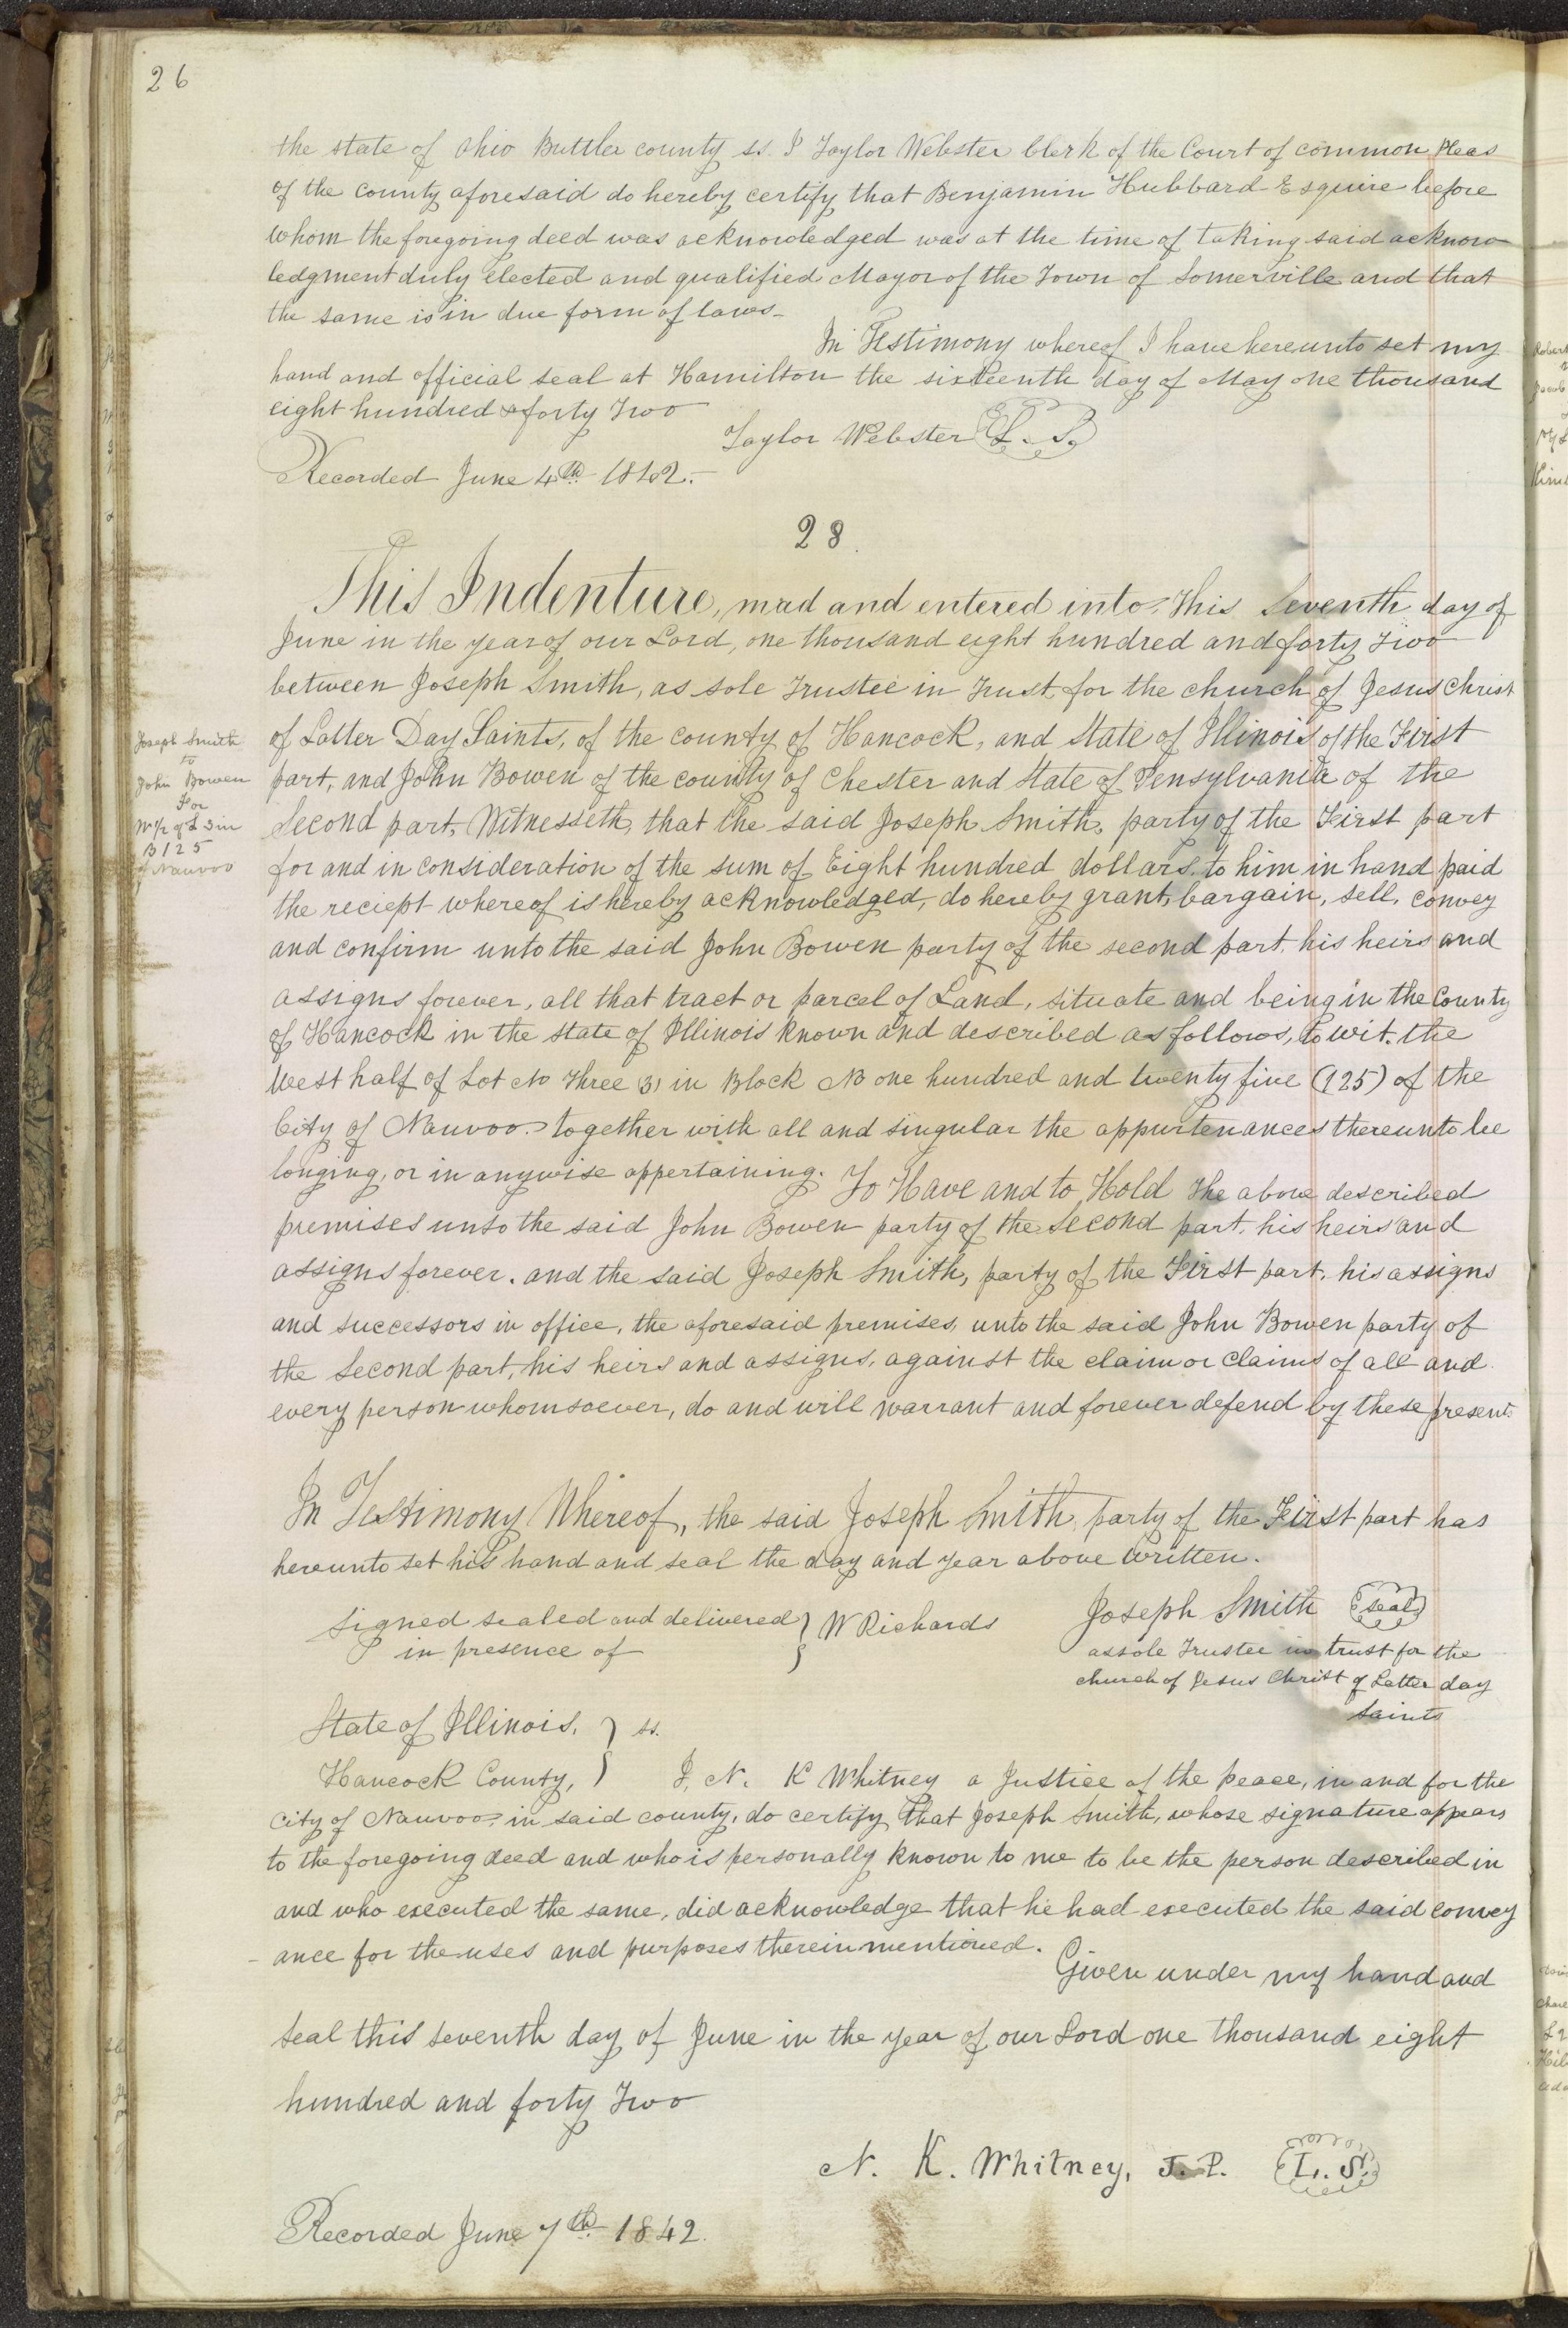 26
the state of Ohio Buttler county ss. I Taylor Webster Clerk of the Court of common Pleas
of the county aforesaid do hereby certify that Benjamin Hubbard Esquire before
whom the foregoing deed was acknowledged was at the time of taking said acknow
ledgment duly elected and qualified Mayor of the Town of Somerville and that
the same is in due form of laws-
In Testimony whereof I have hereunto set my
hand and official seal at Hamilton the sixteenth day of May one thousand
eight hundred & forty Two
Taylor Webster L. S.
Recorded June 4th 1842.-
28.
This Indenture, mad and entered into This Seventh day of
June in the year of our Lord, one thousand eight hundred and forty Two
between Joseph Smith, as sole Trustee in Trust, for the church of Jesus Christ
of Latter Day Saints, of the county of Hancock, and State of Illinois of the First
part, and John Bowen of the county of Chester and State of Pensylvania of the
Second part, Witnesseth, that the said Joseph Smith, party of the First part
for and in consideration of the sum of Eight hundred dollars, to him in hand paid
the reciept whereof is hereby acknowledged, do hereby grant, bargain, sell, convey
and confirm unto the said John Bowen party of the second part, his heirs and
assigns forever, all that tract or parcel of Land, situate and being in the County
of Hancock in the state of Illinois known and described as follows, to wit. the
West half of Lot No Three (3) in Block No one hundred and twenty five (125) of the
City of Nauvoo. together with all and singular the appurtenances thereunto be
longing, or in anywise appertaining. To Have and to Hold The above described
premises unto the said John Bowen party of the Second part, his heirs and
assigns forever. and the said Joseph Smith, party of the First part, his assigns
and successors in office, the aforesaid premises, unto the said John Bowen party of
the Second part, his heirs and assigns, against the claim or claims of all and
every person whomsoever, do and will warrant and forever defend by these presents
In Testimony Whereof, the said Joseph Smith party of the First part has
hereunto set his hand and seal the day and year above written.
Signed sealed and delivered } W Richards
in presence of
Joseph Smith seal
as sole Trustee in trust for the
church of Jesus Christ of Latter day
Saints
State of Illinois, } ss.
Hancock County, } I, N. K Whitney a Justice of the peace, in and for the
City of Nauvoo, in said county, do certify that Joseph Smith, whose signature appears
to the foregoing deed and who is personally known to me to be the person described in
and who executed the same, did acknowledge that he had executed the said convey
-ance for the uses and purposes therein mentioned.
Given under my hand and
seal this seventh day of June in the year of our Lord one thousand eight
hundred and forty Two
N. K. Whitney, J. P. L. S.
Recorded June 7th 1842.
Joseph Smith
to
John Bowen
For
W 1/2 of L 3 in
B 125
of Nauvoo